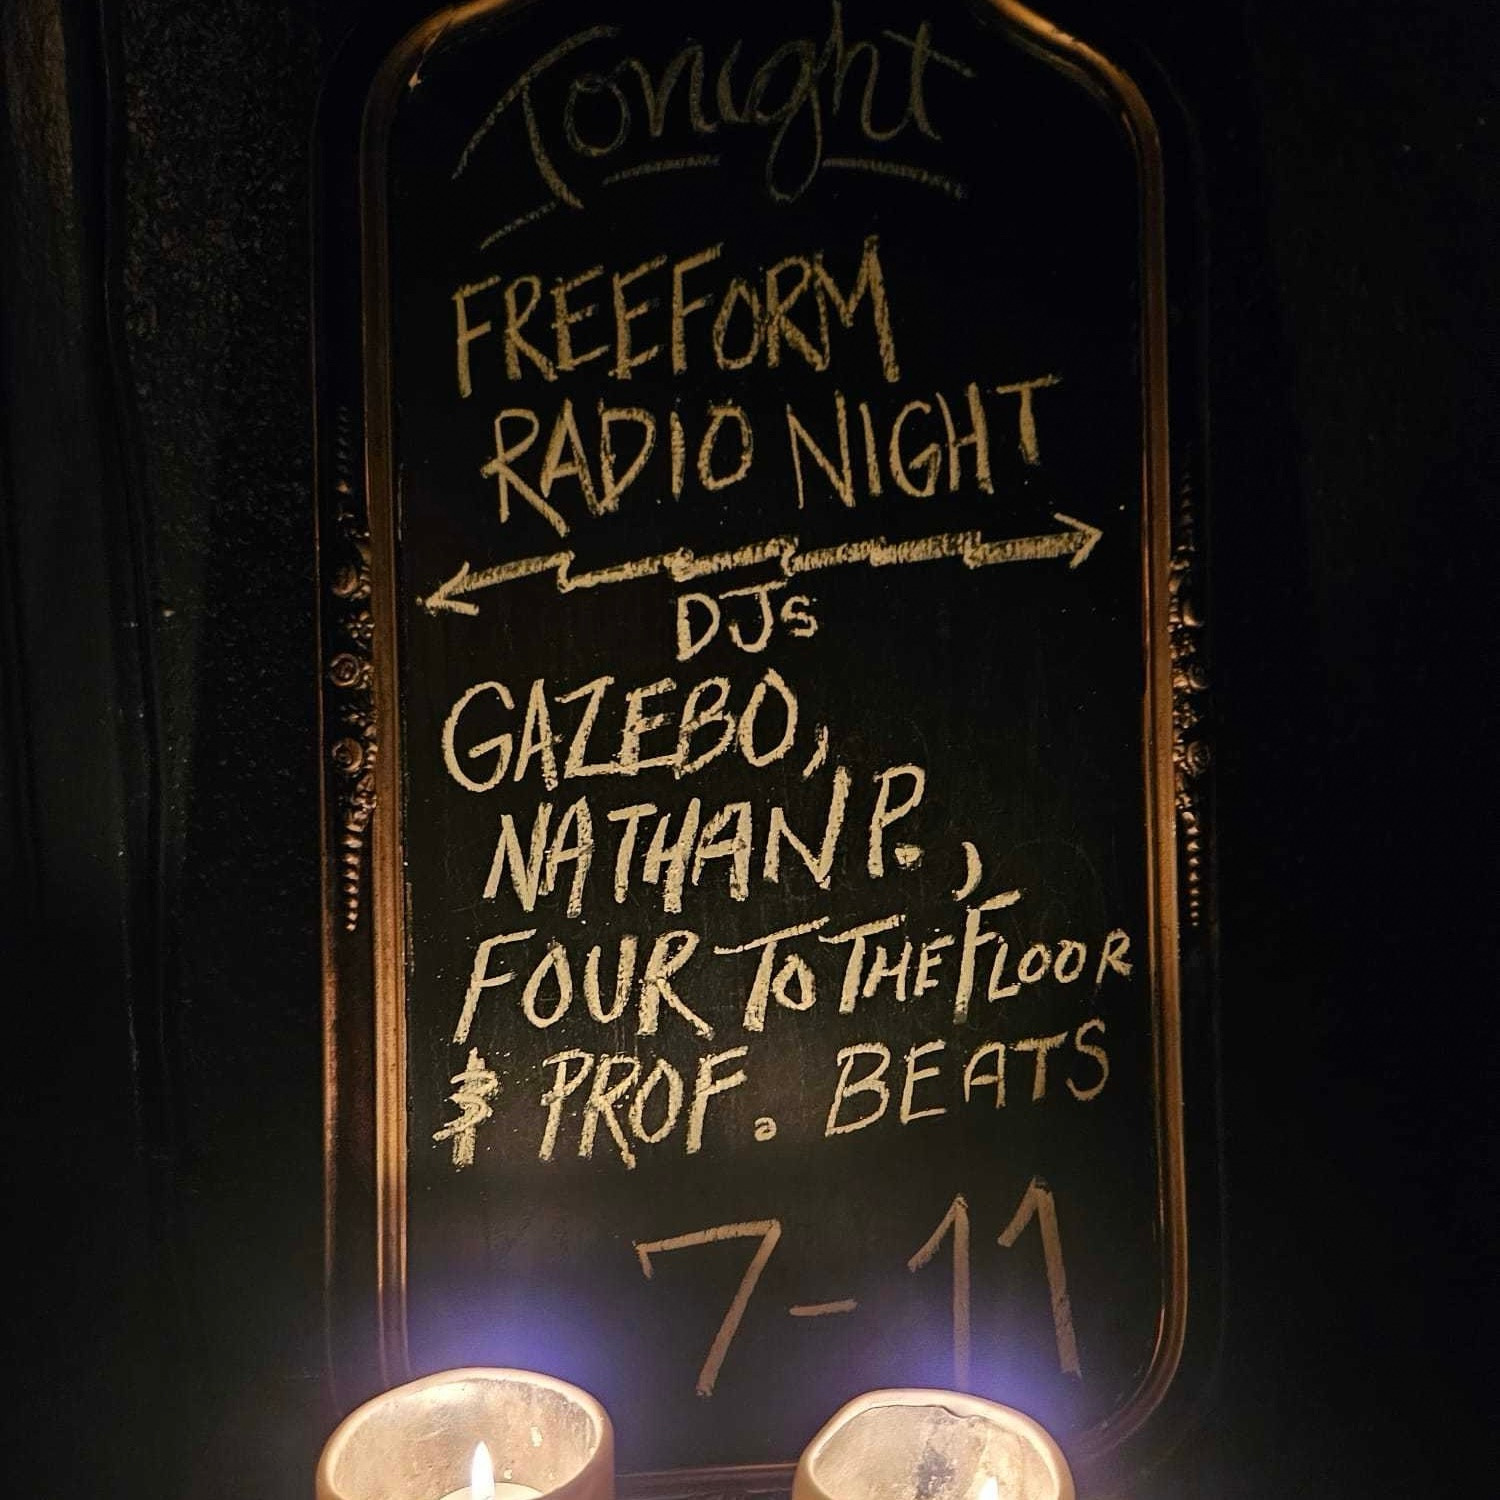 Tonight
FREEFORM
RADIO NIGHT
DJs
GAZEBO,
NATHAN P.,
FOUR TO THE FLOOR
& PROF. BEATS
7-11